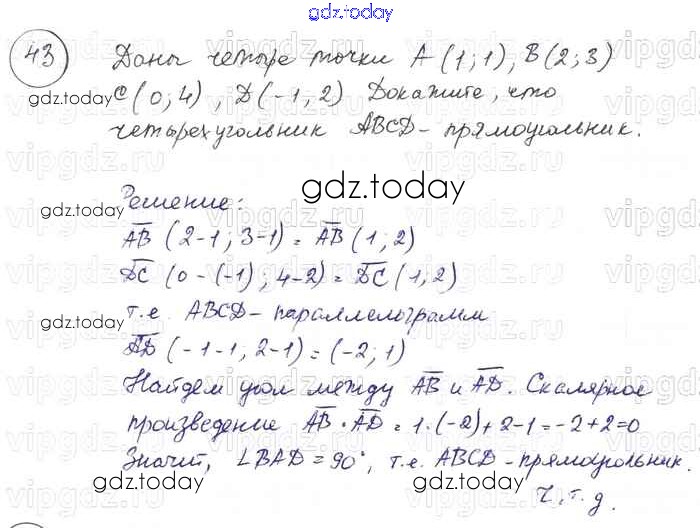 gdz.today
43 Даны четыре точки A (1;1), B(2;3)
gdz.today C(0;4), D(-1,2) Докажите, что
четырехугольник ABCD - прямоугольник.
gdz.today
Решение:
gdz.today AB (2-1; 3-1) = AB (1;2)
DC (0-(-1); 4-2) = DC (1,2)
т.е. ABCD - параллелограмм
gdz.today
AD (-1-1; 2-1) = (-2; 1)
Найдем угол между AB и AD. Скалярное
произведение AB · AD = 1·(-2)+2·1=-2+2=0
gdz.today gdz.today
Значит, ∠BAD = 90°, т.е. ABCD - прямоугольник.
ч.т.д.
gdz.today
vipgdz.ru